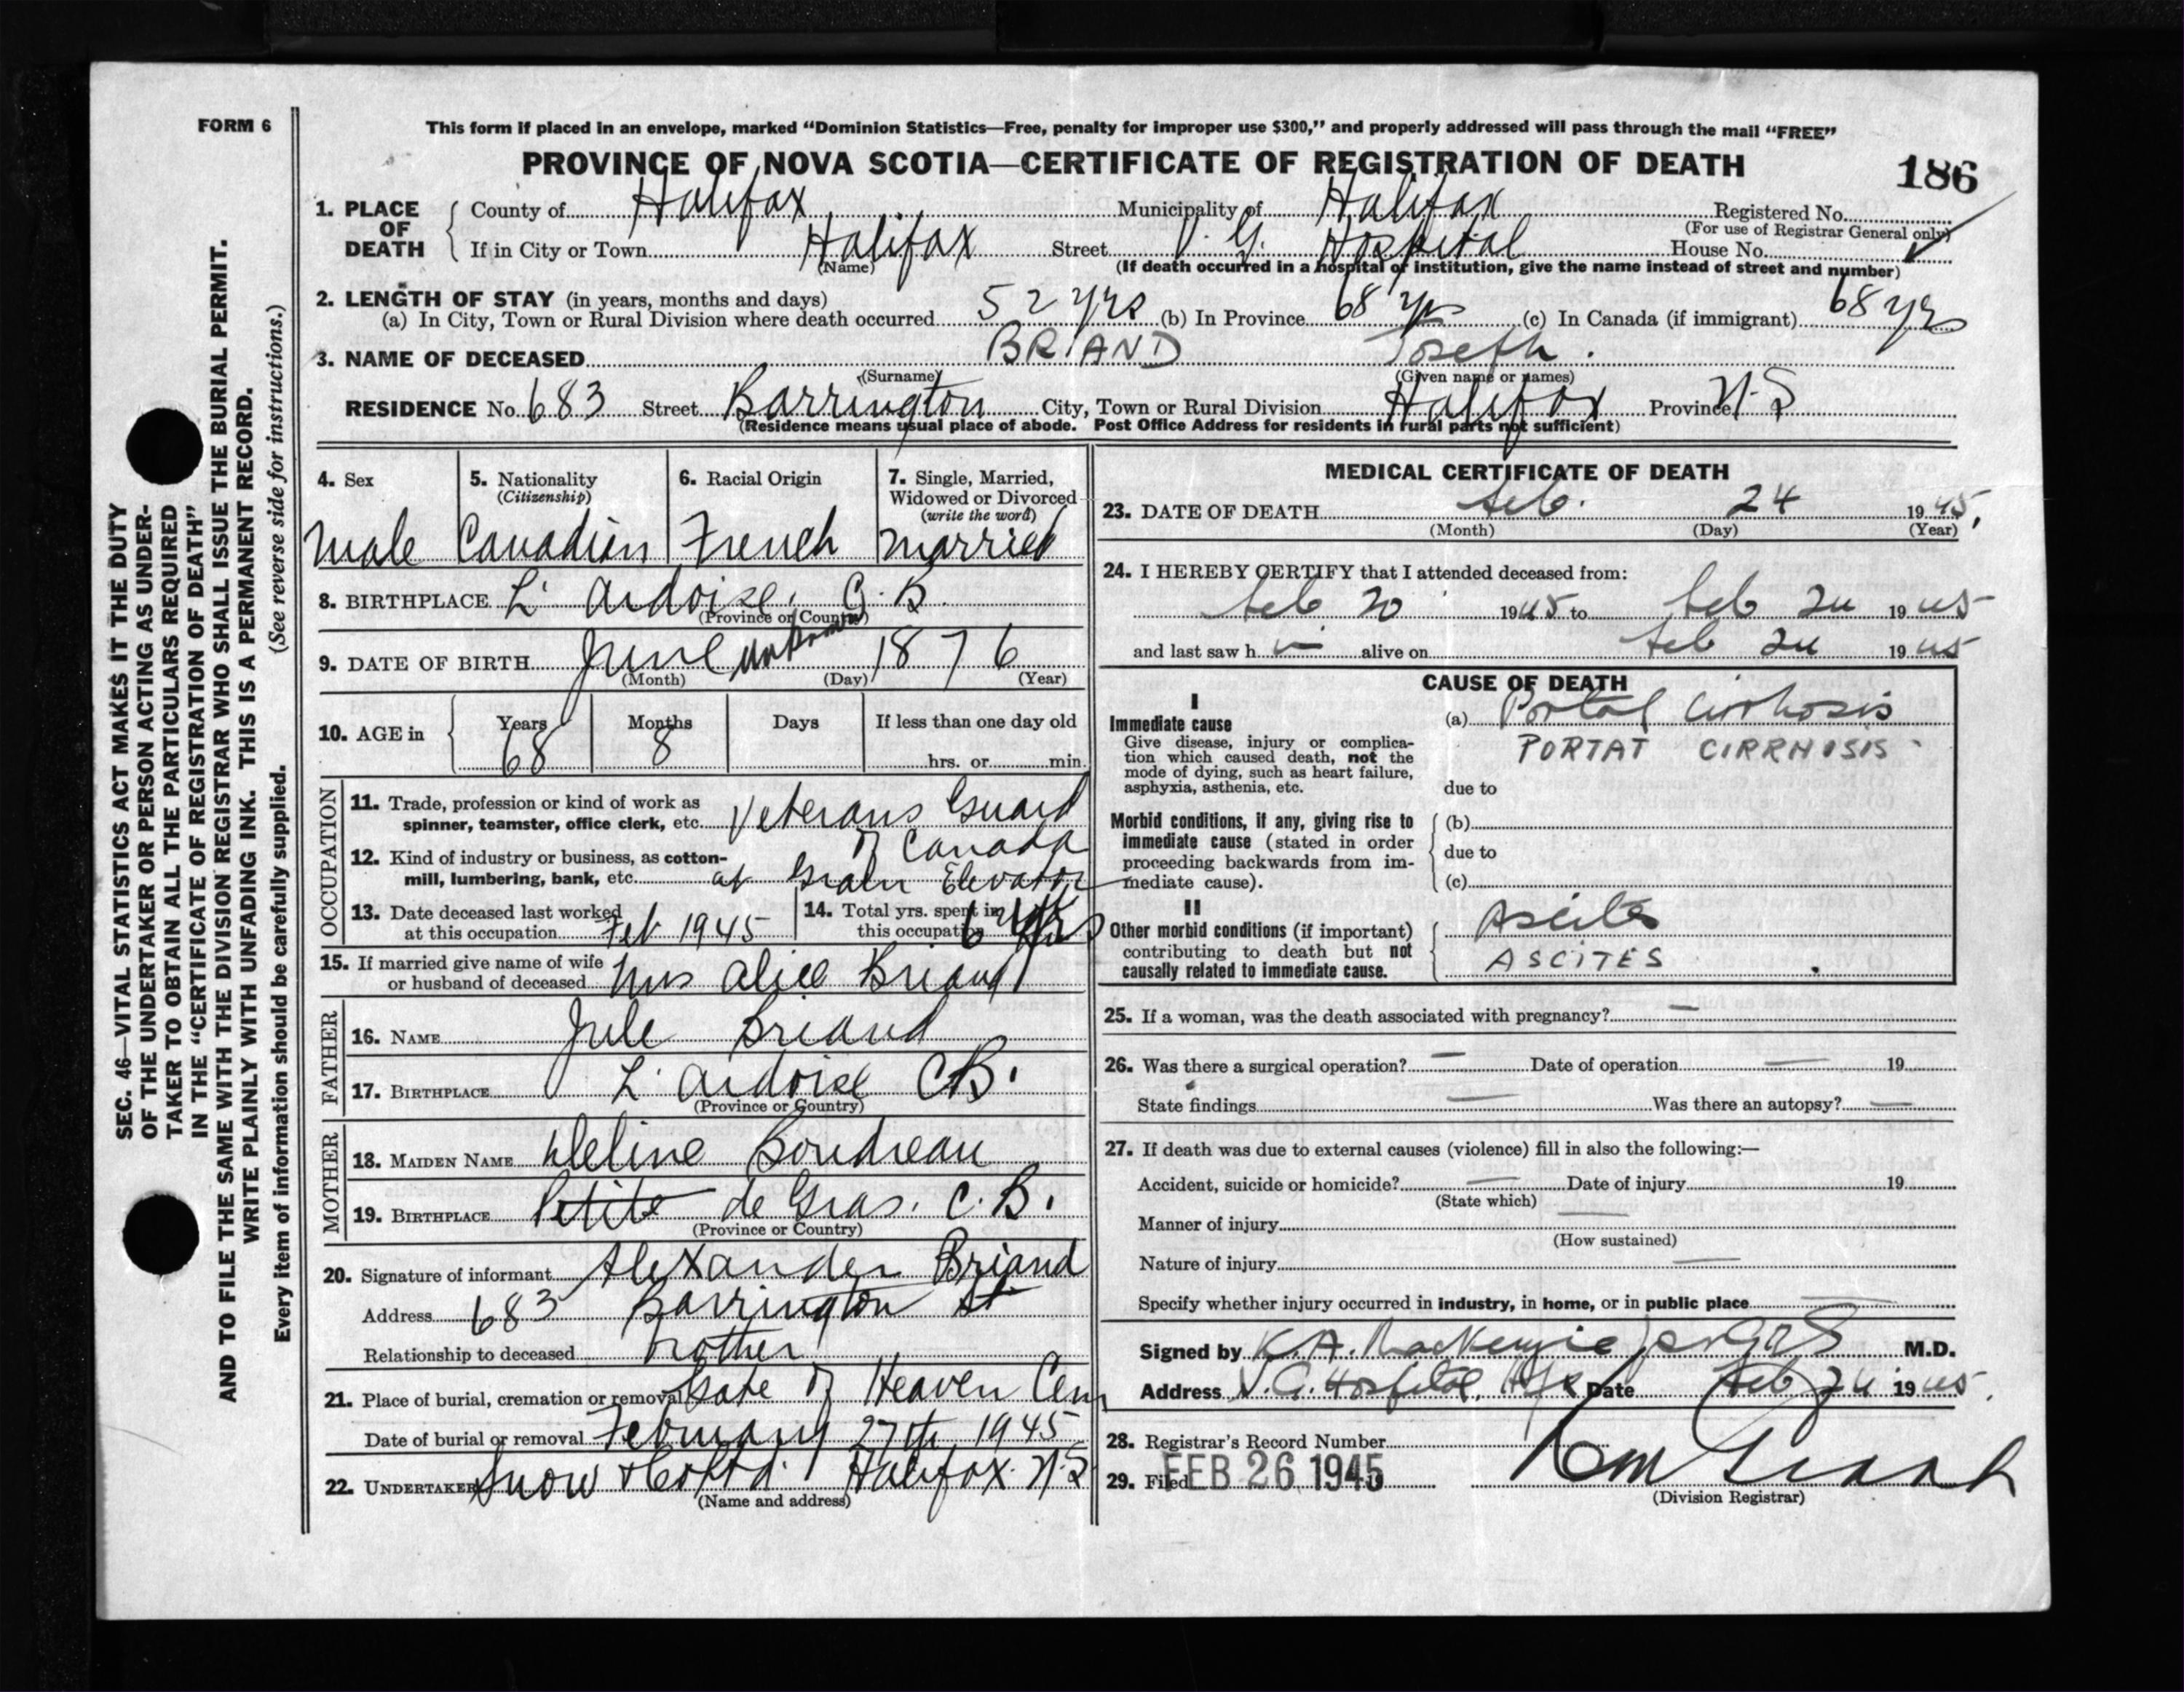 FORM 6
This form if placed in an envelope, marked “Dominion Statistics—Free, penalty for improper use $300,” and properly addressed will pass through the mail “FREE”
PROVINCE OF NOVA SCOTIA—CERTIFICATE OF REGISTRATION OF DEATH
186
1. PLACE OF DEATH
County of Halifax Municipality of Halifax Registered No.
(For use of Registrar General only)
If in City or Town Halifax Street V. G. Hospital House No.
(Name) (If death occurred in a hospital or institution, give the name instead of street and number)
2. LENGTH OF STAY (in years, months and days)
(a) In City, Town or Rural Division where death occurred 52 yrs (b) In Province 68 yrs (c) In Canada (if immigrant) 68 yrs
3. NAME OF DECEASED BRIAND Joseph.
(Surname) (Given name or names)
RESIDENCE No. 683 Street Barrington City, Town or Rural Division Halifax Province N-S
(Residence means usual place of abode. Post Office Address for residents in rural parts not sufficient)
4. Sex
Male
5. Nationality
(Citizenship)
Canadian
6. Racial Origin
French
7. Single, Married,
Widowed or Divorced
(write the word)
Married
8. BIRTHPLACE L' Ardoise, C. B.
(Province or Country)
9. DATE OF BIRTH June unknown 1876
(Month) (Day) (Year)
10. AGE in Years Months Days If less than one day old
68 8 hrs. or min.
OCCUPATION
11. Trade, profession or kind of work as
spinner, teamster, office clerk, etc. Veterans Guard
of Canada
12. Kind of industry or business, as cotton-
mill, lumbering, bank, etc. at Grain Elevator
13. Date deceased last worked
at this occupation Feb 1945
14. Total yrs. spent in
this occupation 6 yrs
15. If married give name of wife
or husband of deceased Mrs Alice Briand
FATHER
16. NAME Jule Briand
17. BIRTHPLACE L' Ardoise CB.
(Province or Country)
MOTHER
18. MAIDEN NAME Deline Boudreau
19. BIRTHPLACE Petite de Gras. C. B.
(Province or Country)
20. Signature of informant Alexander Briand
Address 683 Barrington St
Relationship to deceased Brother
21. Place of burial, cremation or removal Gate of Heaven Cem
Date of burial or removal February 27th 1945
22. UNDERTAKER Snow & Co Ltd. Halifax. N.S
(Name and address)
MEDICAL CERTIFICATE OF DEATH
23. DATE OF DEATH Feb. 24 1945.
(Month) (Day) (Year)
24. I HEREBY CERTIFY that I attended deceased from:
Feb 20 1945 to Feb 24 1945
and last saw h im alive on Feb 24 1945
CAUSE OF DEATH
I
Immediate cause
Give disease, injury or complica-
tion which caused death, not the
mode of dying, such as heart failure,
asphyxia, asthenia, etc.
(a) Portal Cirrhosis
PORTAT CIRRHISIS
due to
Morbid conditions, if any, giving rise to
immediate cause (stated in order
proceeding backwards from im-
mediate cause).
(b)
due to
(c)
II
Other morbid conditions (if important)
contributing to death but not
causally related to immediate cause.
Ascites
ASCITES
25. If a woman, was the death associated with pregnancy? —
26. Was there a surgical operation? — Date of operation — 19
State findings — Was there an autopsy? —
27. If death was due to external causes (violence) fill in also the following:—
Accident, suicide or homicide? — Date of injury 19
(State which)
Manner of injury —
(How sustained)
Nature of injury —
Specify whether injury occurred in industry, in home, or in public place —
Signed by K. A. MacKenzie M.D.
Address V. G. Hospital, Hfx Date Feb 24 1945.
28. Registrar's Record Number
29. Filed FEB 26 1945
(Division Registrar)
SEC. 46—VITAL STATISTICS ACT MAKES IT THE DUTY
OF THE UNDERTAKER OR PERSON ACTING AS UNDER-
TAKER TO OBTAIN ALL THE PARTICULARS REQUIRED
IN THE “CERTIFICATE OF REGISTRATION OF DEATH”
AND TO FILE THE SAME WITH THE DIVISION REGISTRAR WHO SHALL ISSUE THE BURIAL PERMIT.
WRITE PLAINLY WITH UNFADING INK. THIS IS A PERMANENT RECORD.
Every item of information should be carefully supplied. (See reverse side for instructions.)